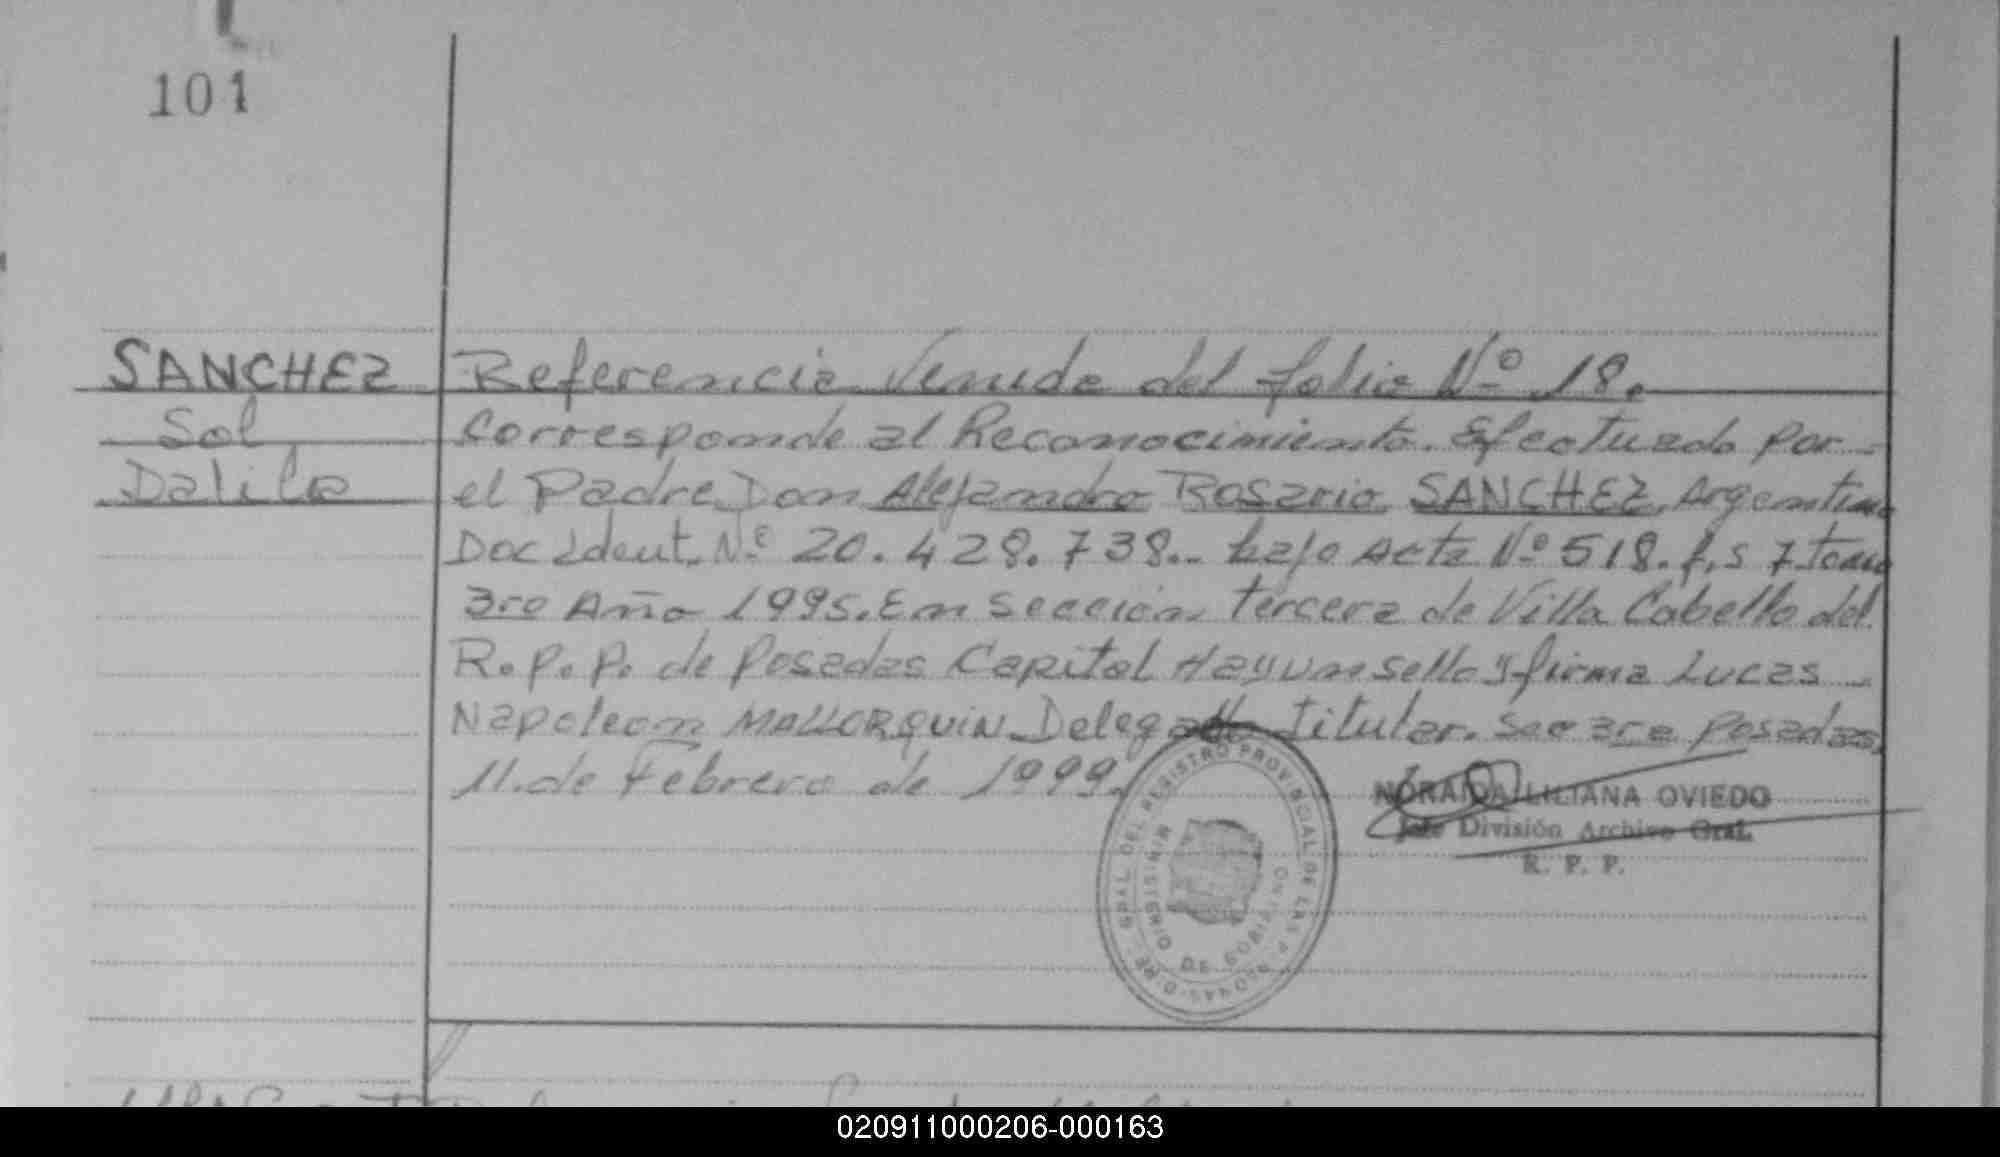 101
SANCHEZ
Sol
Dalila
Referencia Venida del folio Nº 18.
Corresponde al Reconocimiento. Efectuado Por-
el Padre Don Alejandro Rosario SANCHEZ, Argentino
Doc Ident. Nº 20.428.738.- bajo Acta Nº 518. f,s 7 tomo
3ro Año 1995. En Sección tercera de Villa Cabello del
R.P.P. de Posadas Capital Hay un sello y firma Lucas -
Napoleon MALLORQUIN Delegado titular. Sec 3ra Posadas,
11.de Febrero de 1999.
NORAIDA LILIANA OVIEDO
Jefe División Archivo Gral.
R. P. P.
GRAL. DEL REGISTRO PROVINCIAL DE LAS P
MINISTERIO DE GOBIERNO
020911000206-000163